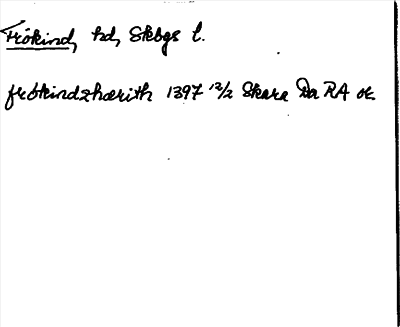 Frökind, hd, Skbgs l.
frökindzhærith 1397 12/2 Skara Da RA or.